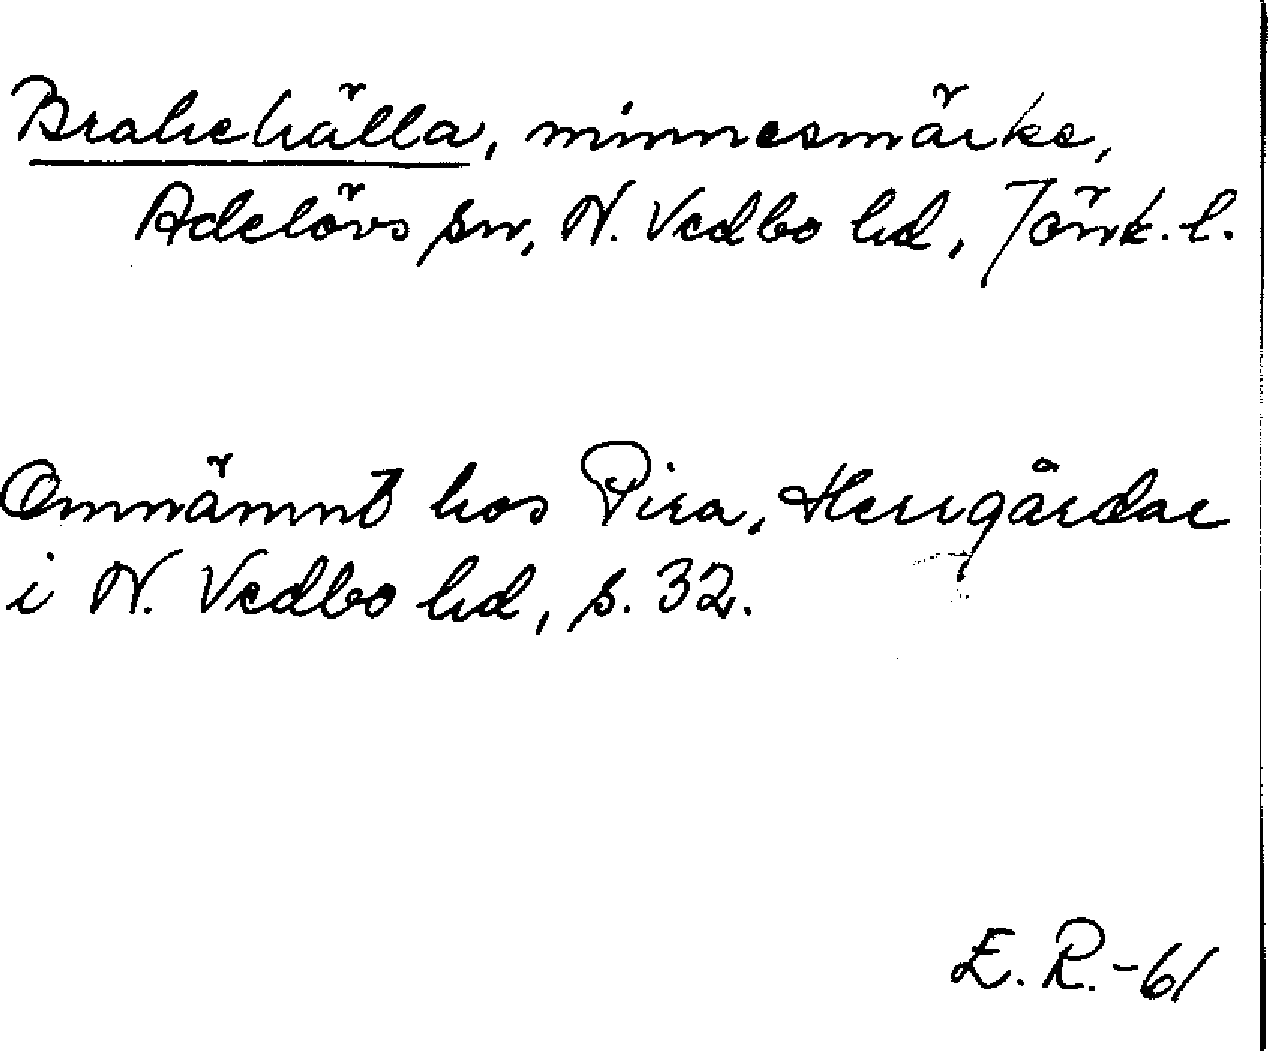 Brahehälla, minnesmärke,
Adelövs sn, N. Vedbo hd, Jönk. l.
Omnämnt hos Pira, Herrgårdar
i N. Vedbo hd, s. 32.
E. R. -61